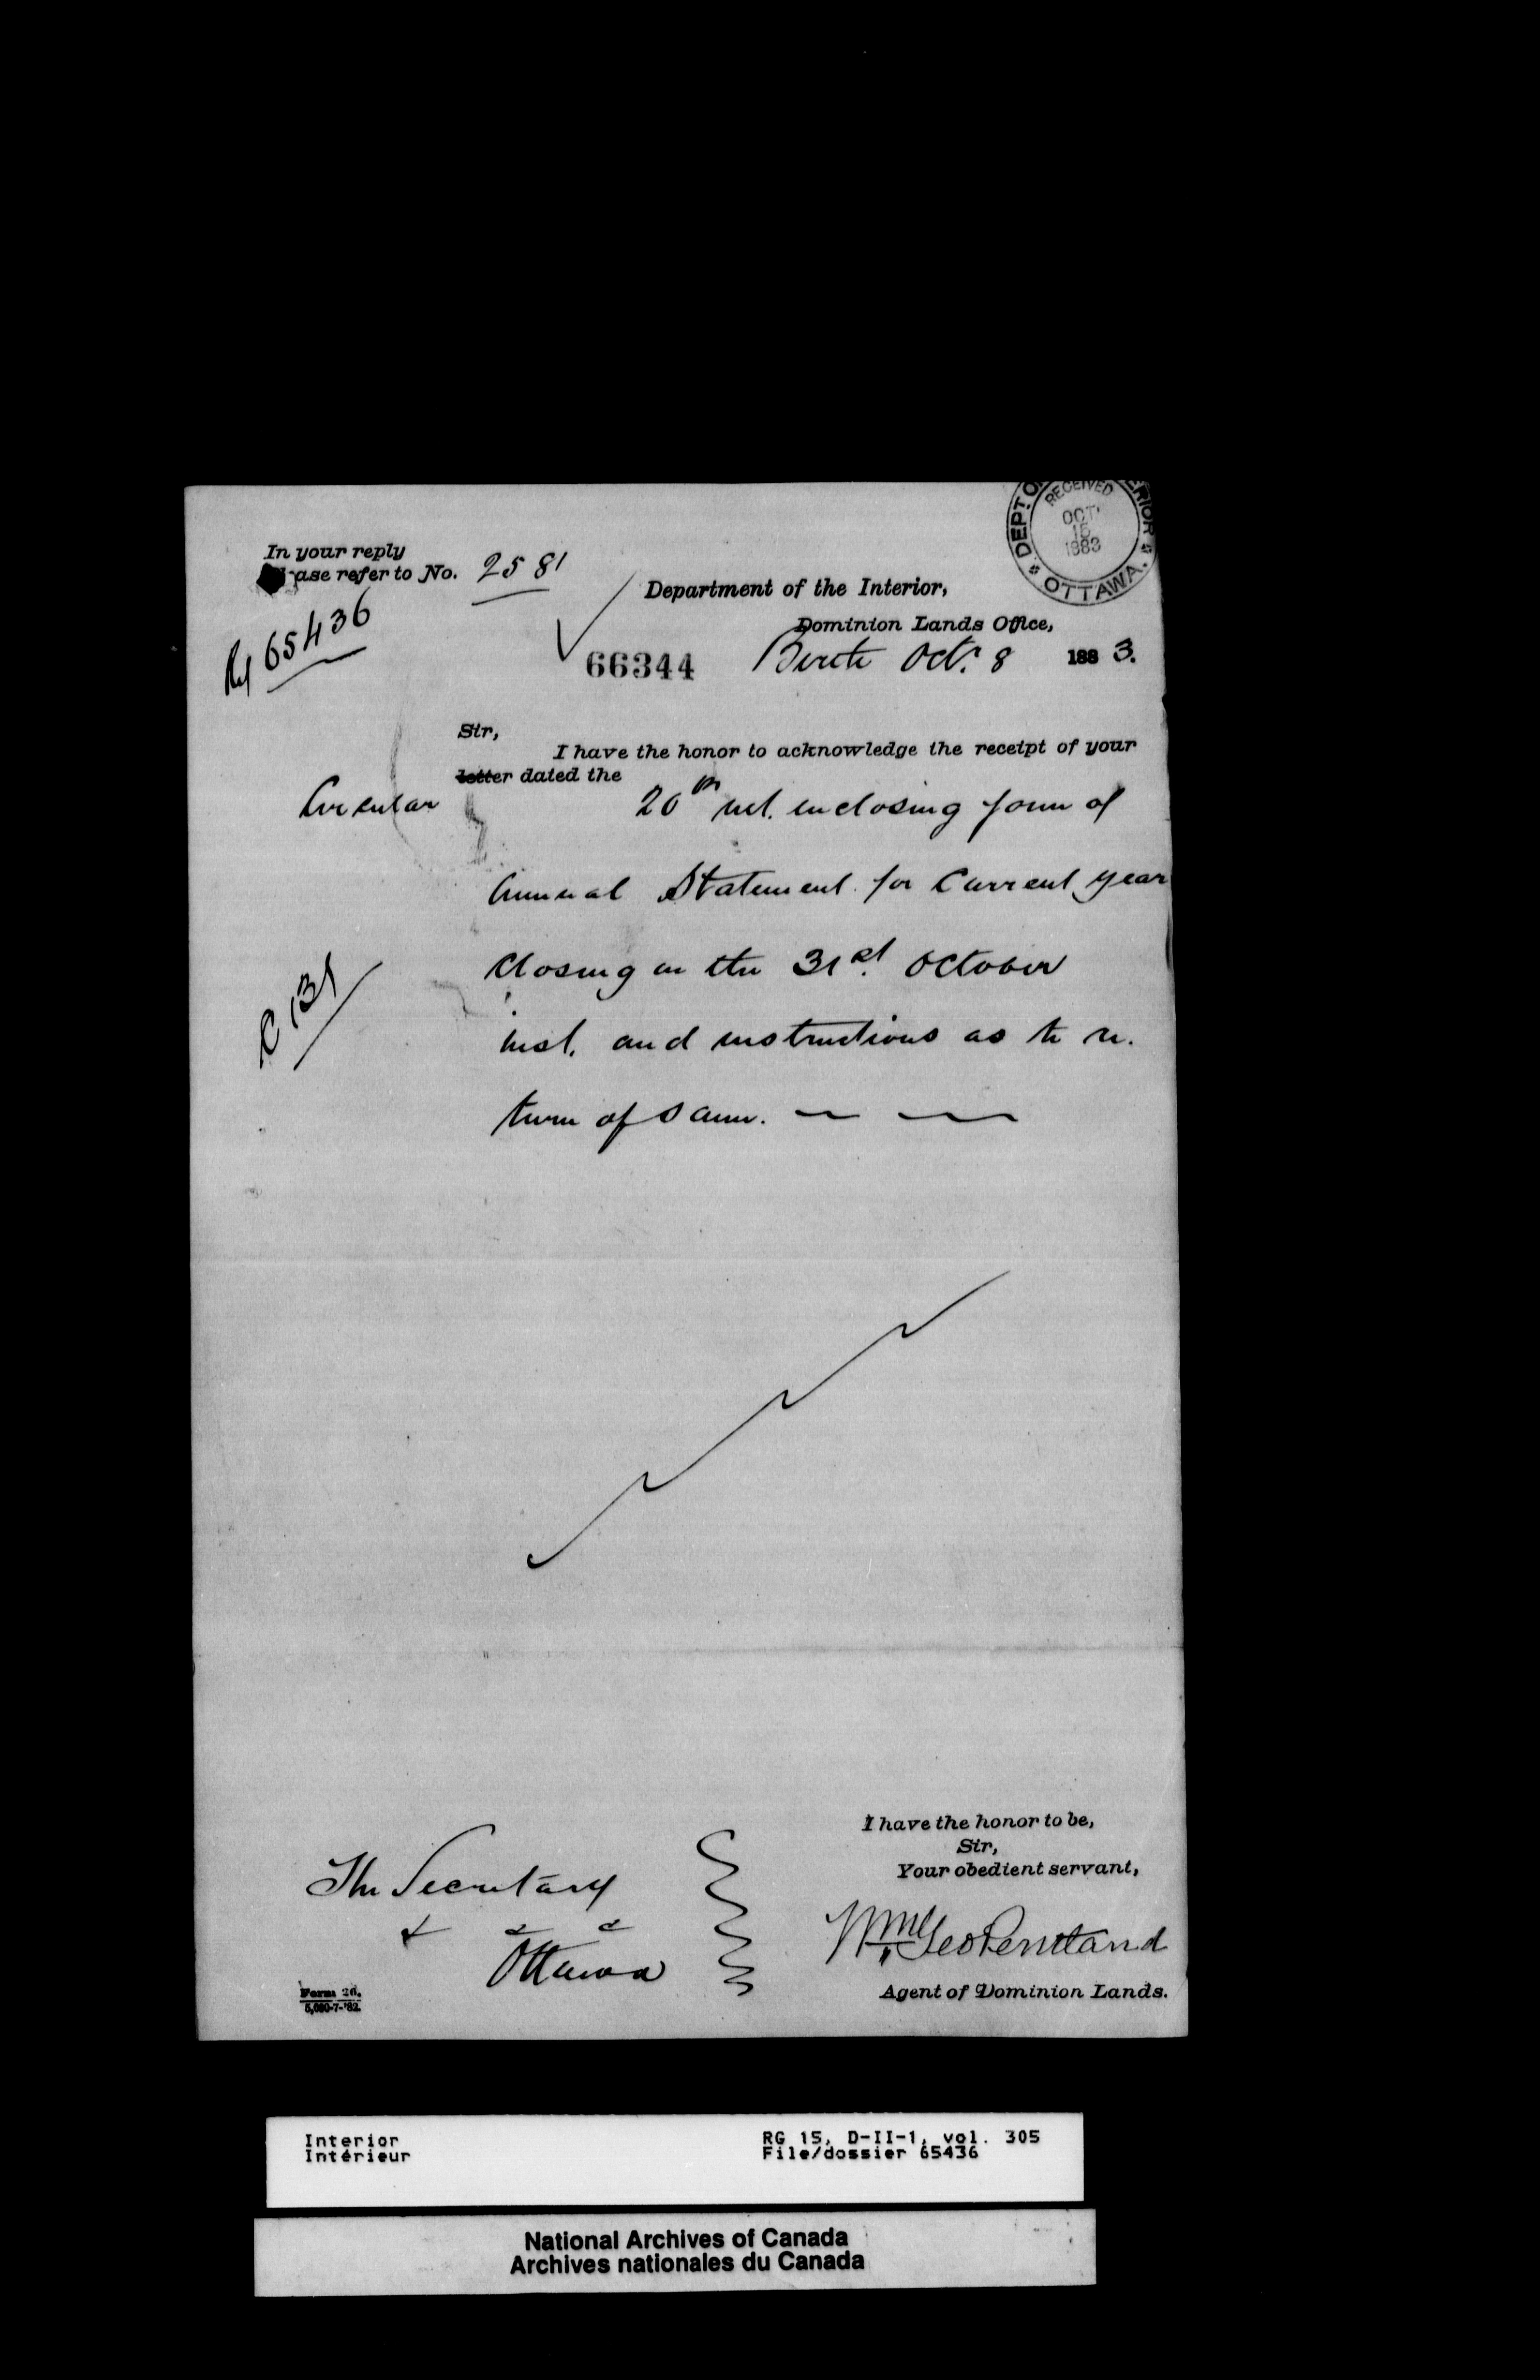 DEPT OF INTERIOR
RECEIVED
OCT
15
1883
OTTAWA.
In your reply
please refer to No. 2581
Department of the Interior,
Dominion Lands Office,
Ref 65436
66344
Birtle Oct. 8 1883.
Sir,
I have the honor to acknowledge the receipt of your
letter dated the
Circular 20th ult. enclosing form of
Annual Statement for Current year
Closing on the 31st. October
C 131
inst. and instructions as to re-
turn of same.
I have the honor to be,
Sir,
Your obedient servant,
The Secretary
Ottawa
Wm Geo Pentland
Agent of Dominion Lands.
Form 26.
5,000-7-'82.
Interior
Intérieur
RG 15, D-II-1, vol. 305
File/dossier 65436
National Archives of Canada
Archives nationales du Canada